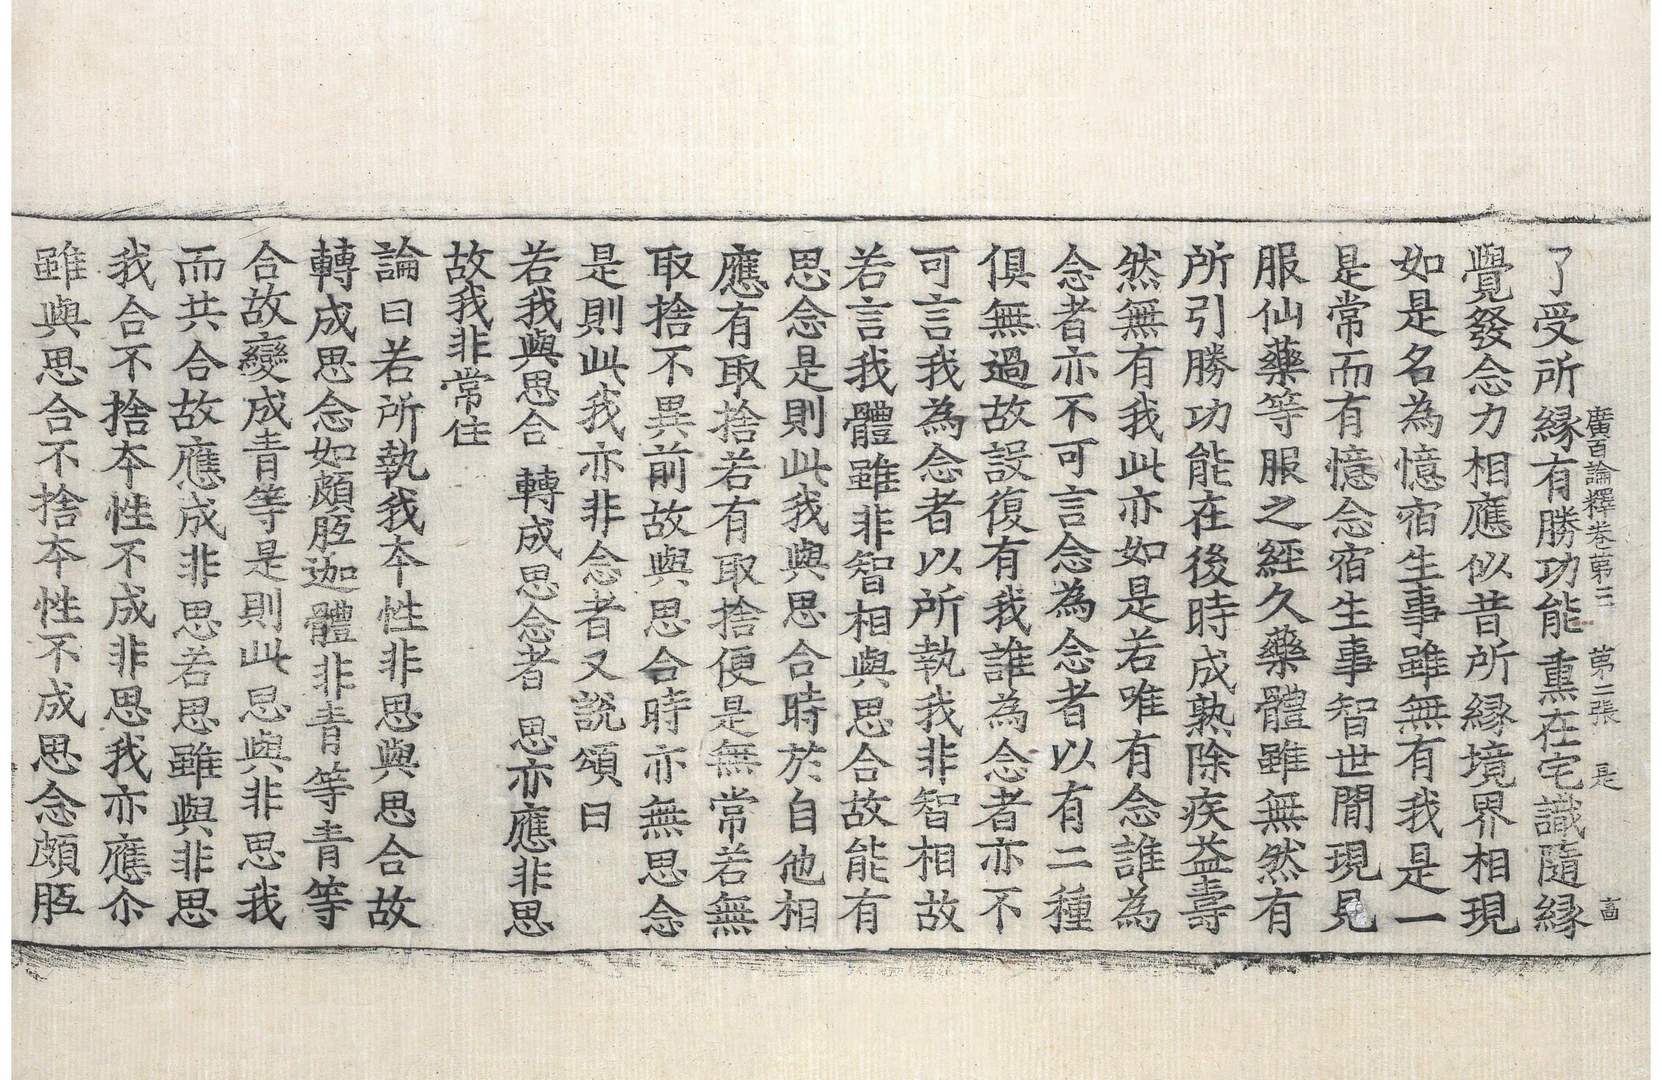 廣百論釋卷第三 第二張 是
了受所緣有勝功能熏在宅識隨緣
覺發念力相應似昔所緣境界相現
如是名為憶宿生事雖無有我是一
是常而有憶念宿生事智世閒現見
服仙藥等服之經久藥體雖無然有
所引勝功能在後時成熟除疾益壽
然無有我此亦如是若唯有念誰為
念者亦不可言念為念者以有二種
俱無過故設復有我誰為念者亦不
可言我為念者以所執我非智相故
若言我體雖非智相與思合故能有
思念是則此我與思合時於自他相
應有取捨若有取捨便是無常若無
取捨不異前故與思合時亦無思念
是則此我亦非念者又說頌曰
若我與思合 轉成思念者 思亦應非思
故我非常住
論曰若所執我本性非思與思合故
轉成思念如頗胝迦體非青等青等
合故變成青等是則此思與非思我
而共合故應成非思若思雖與非思
我合不捨本性不成非思我亦應尒
雖與思合不捨本性不成思念頗胝